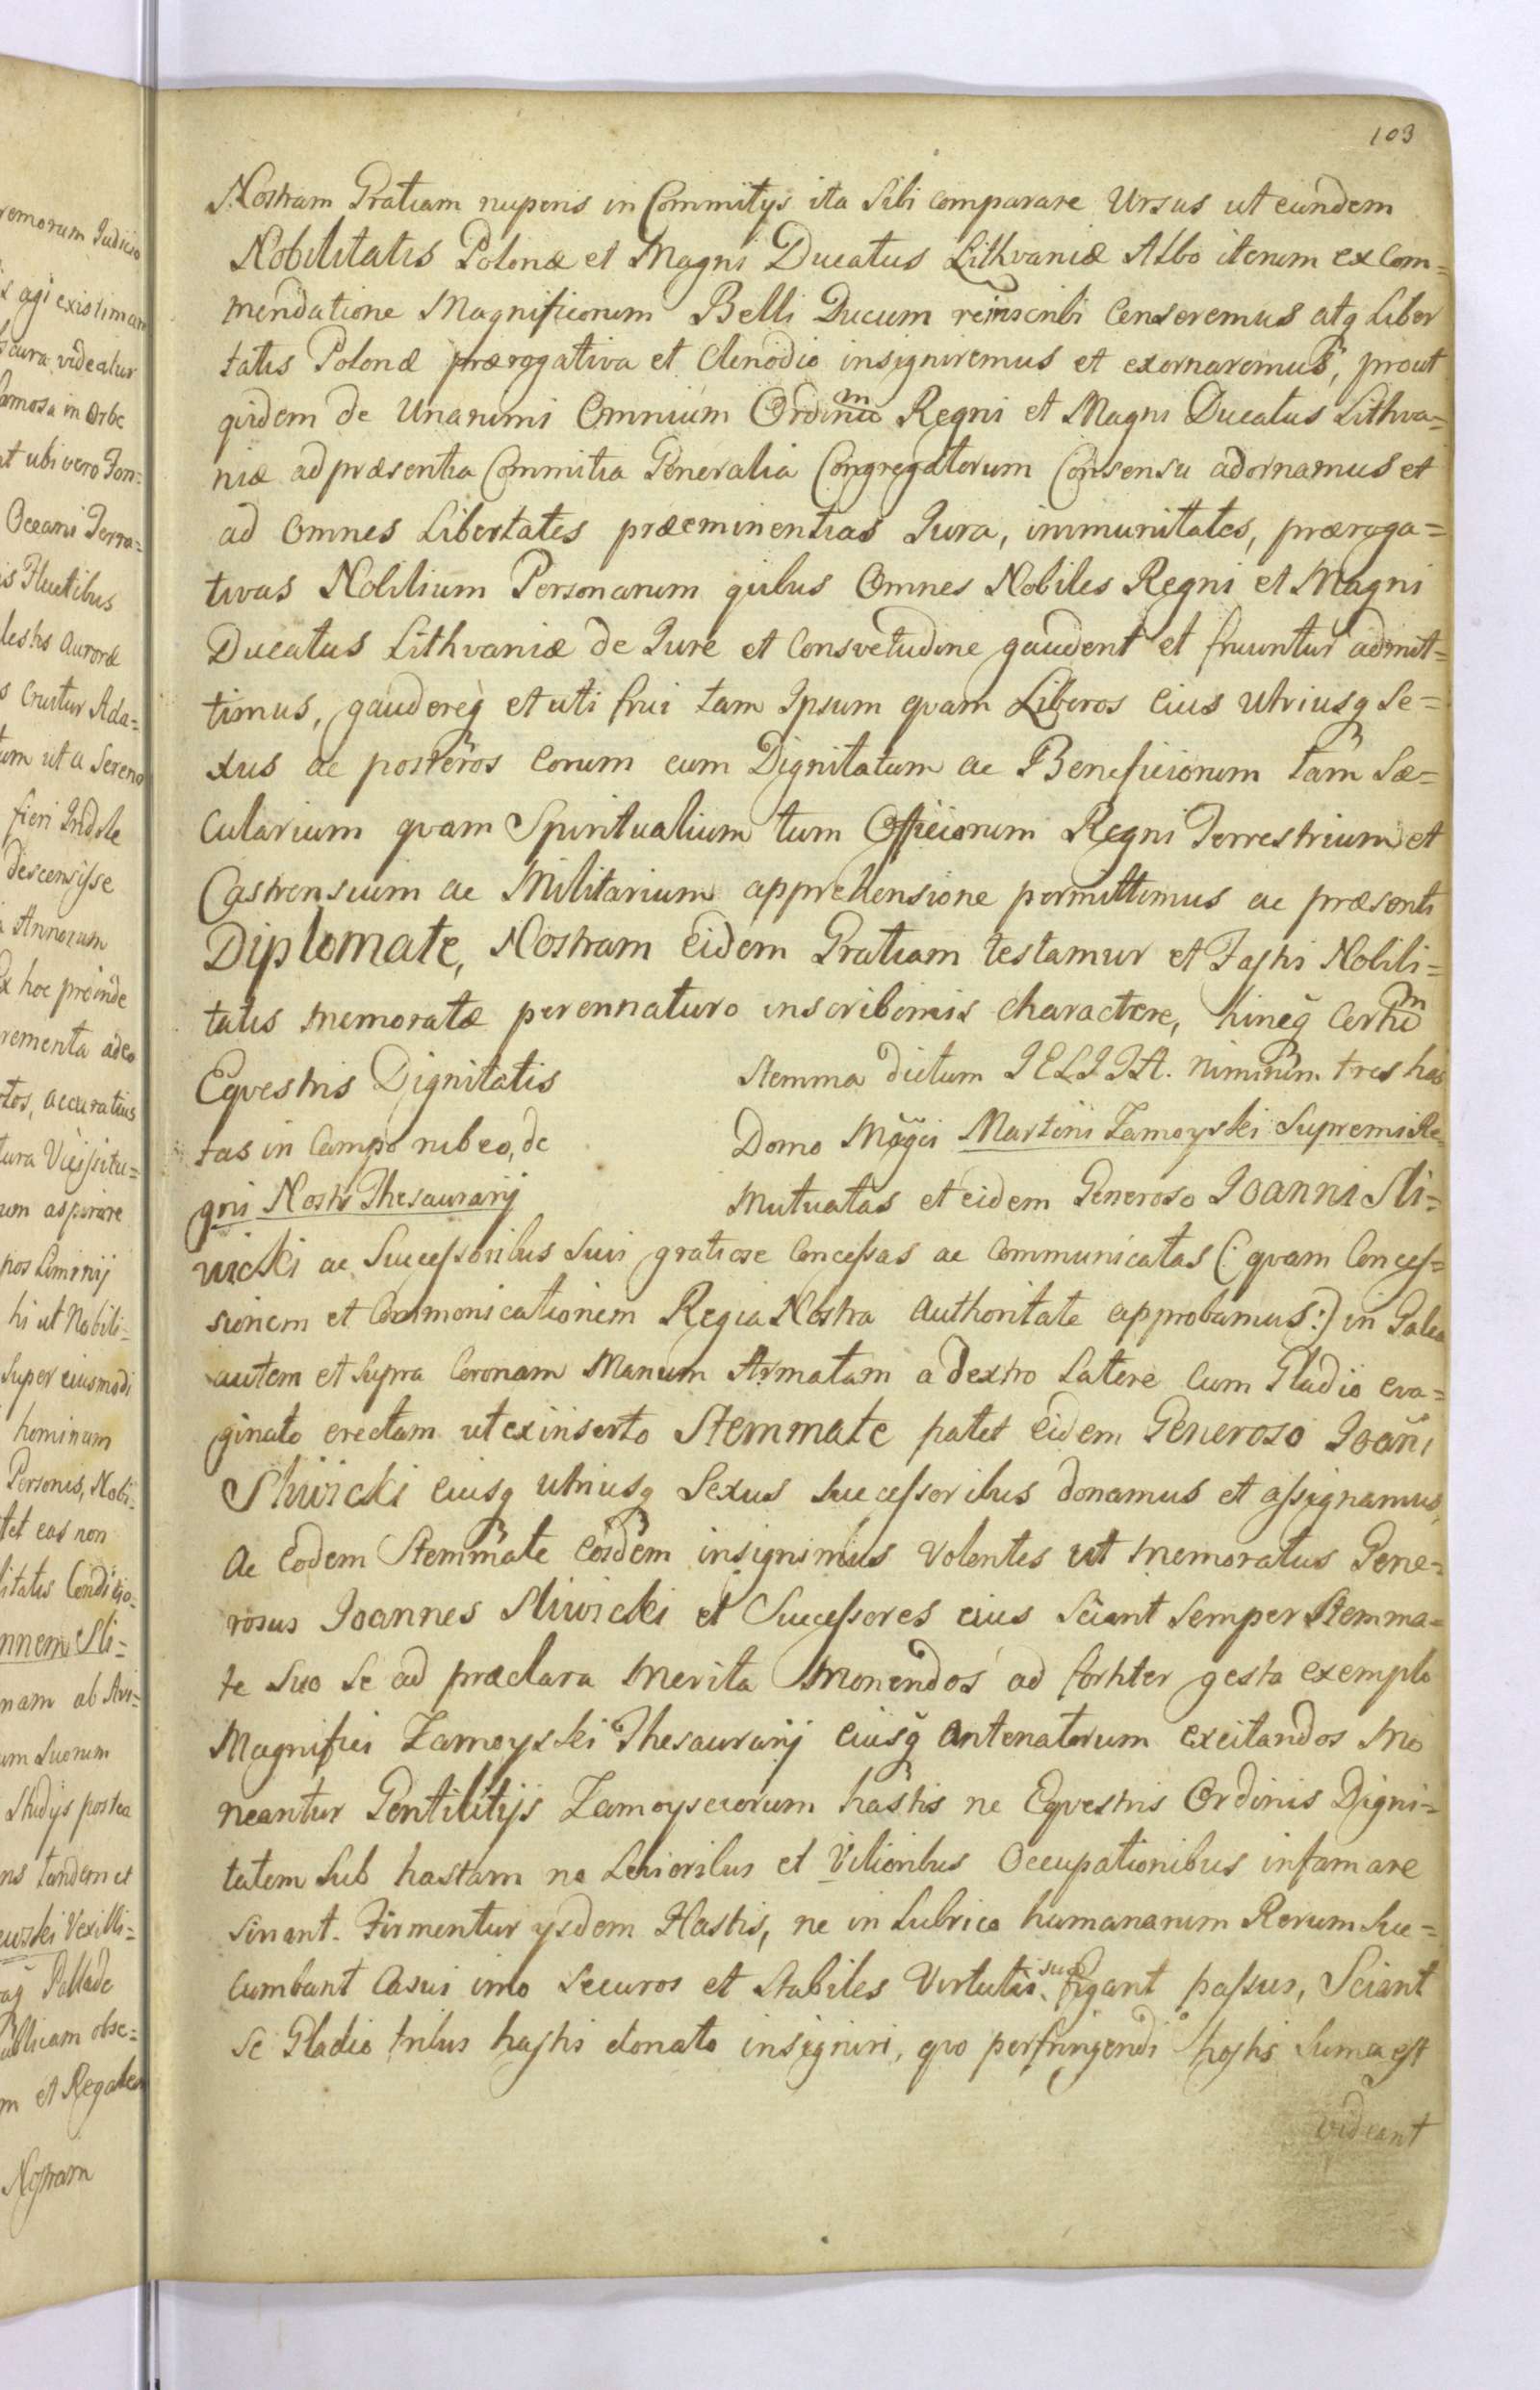 103
Nostram Gratiam nuperis in Commitys ita sibi comparare Ursus ut eundem
Nobilitatis Polonæ et Magni Ducatus Lithvaniæ Albo iterum ex Com=
mendatione Magnificorum Belli Ducum reinscribi Censeremus atq Liber
tatis Polonæ prærogativa et Clenodio insigniremus et exornaremus, prout
qvidem de Unanimi Omnium Ordinum Regni et Magni Ducatus Lithva=
niæ ad præsentia Commitia Generalia Congregatorum Consensu adornamus et
ad Omnes Libertates præeminentias Jura, immunitates, præroga=
tivas Nobilium Personarum qvibus Omnes Nobiles Regni et Magni
Ducatus Lithvaniæ de Jure et Consvetudine gaudent et fruuntur admit=
timus, gaudereq et uti frui tam Ipsum qvam Liberos Eius Utriusq Se=
xus ac posteros Eorum cum Dignitatum ac Beneficiorum tam Sæ=
cularium qvam Spiritualium tum Officiorum Regni Terrestrium et
Castrensium ac Militarium apprehensione permittimus ac præsenti
Diplomate, Nostram Eidem Gratiam testamur et Fastis Nobili=
tatis memoratæ perennaturo inscribimus charactere, hincq Certum
Eqvestris Dignitatis Stemma dictum JELITA. nimirum tres has
tas in Campo rubeo, de Domo Magci Martini Zamoyski Supremi Re=
gni Nostri Thesaurarij Mutuatas et eidem Generoso Joanni Sli=
wicki ac Successoribus Suis gratiose Concessas ac Communicatas (: qvam Conces=
sionem et Commonicationem Regia Nostra Authoritate approbamus :) in Galea
autem et supra Coronam Manum Armatam a dextro Latere Cum Gladio eva=
ginato erectam ut ex inserto Stemmate patet Eidem Generoso Joañi
Sliwicki eiusq utriusq Sexus Successoribus donamus et assignamus,
ac Eodem Stemmate Eosdem insignimus Volentes ut memoratus Gene=
rosus Joannes Sliwicki et Successores eius Sciant Semper Stemma=
te Suo Se ad præclara Merita Monendos ad fortiter gesta exemplo
Magnifici Zamoyski Thesaurarij eiusq Antenatorum excitandos Mo
neantur Gentilitijs Zamoysciorum hastis ne Eqvestris Ordinis Digni=
tatem Sub hastam ne Levioribus et Vilioribus Occupationibus infamare
sinant. Firmentur ysdem Hastis, ne in Lubrico humanarum Rerum Suc=
cumbant Casui imo Securos et Stabiles Virtutis suæ figant passus, Sciant
Se Gladio tribus hastis donato insigniri, qvo perfringendi hostis Suma est
videant